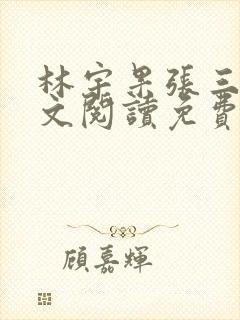 林宇果張三
文閱讀免費
顧嘉輝